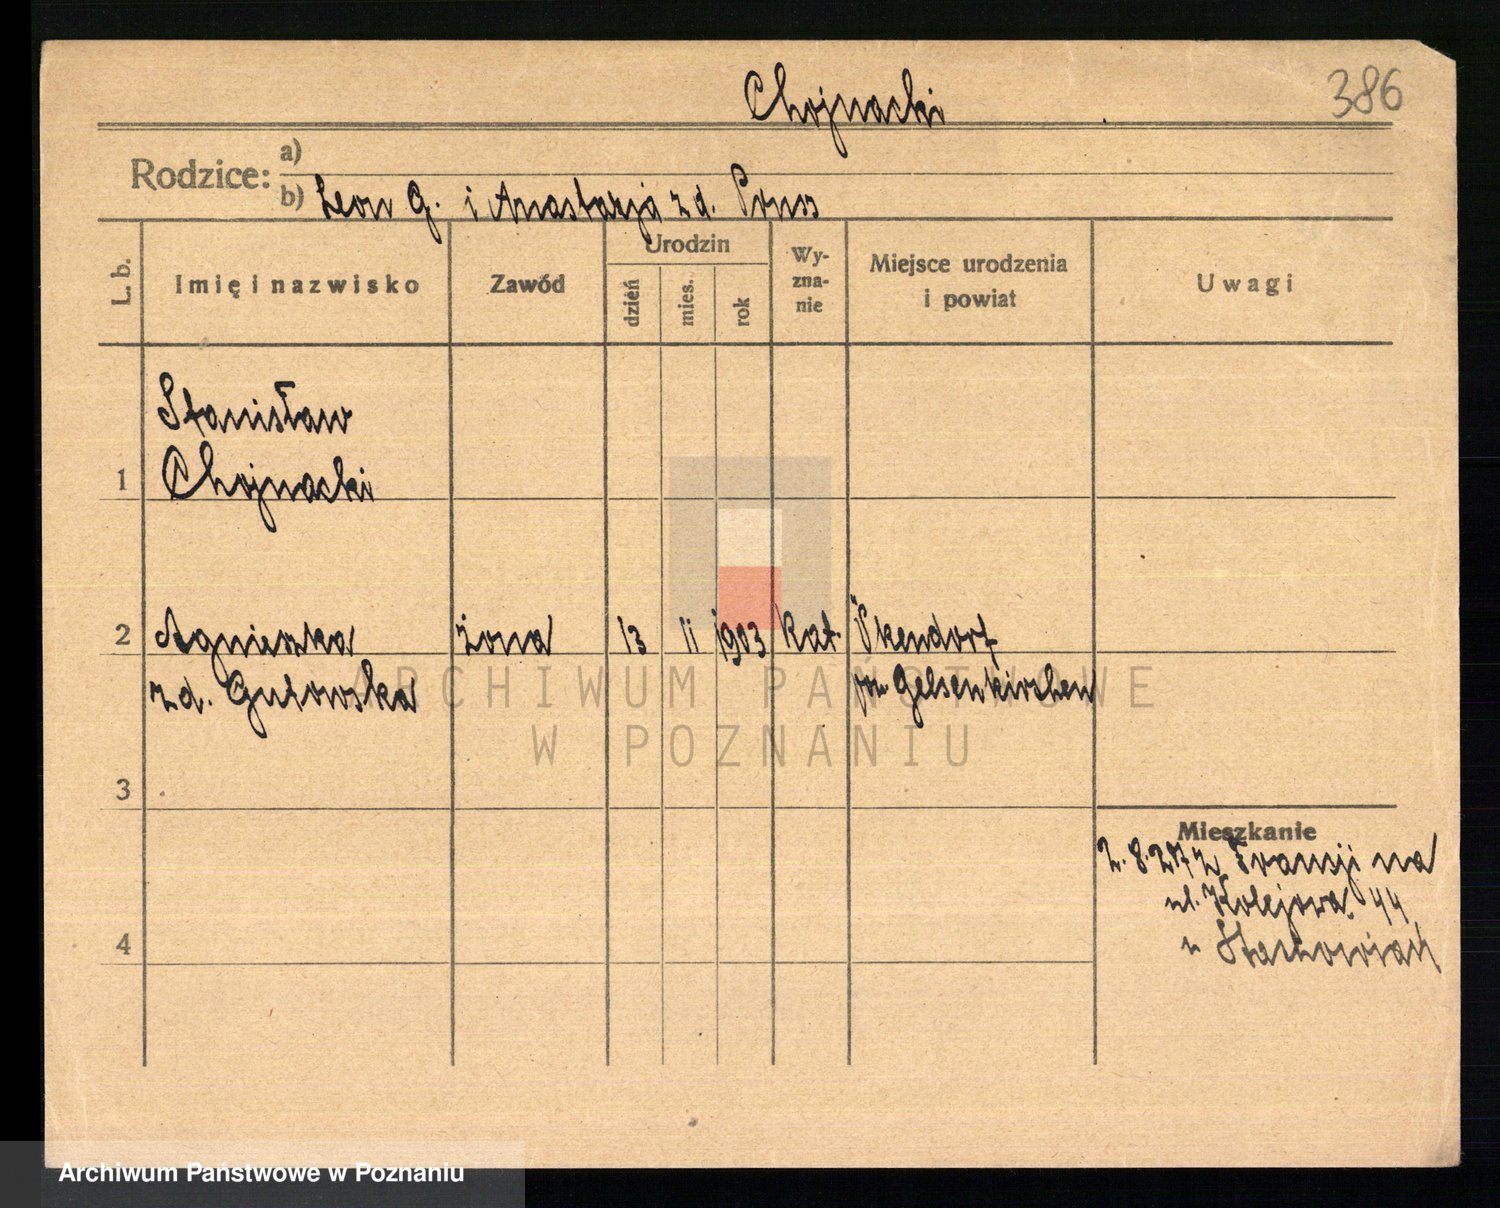 Chojnacki
386
Rodzice:
a)
b) Leon G. i Anastazja zd. Pruss
L. b.
Imię i nazwisko
Zawód
Urodzin
dzień
mies.
rok
Wy-
zna-
nie
Miejsce urodzenia
i powiat
Uwagi
Stanisław
1 Chojnacki
2 Agnieszka żona 13 II 1903 kat. Ückendorf
zd. Gutowska pow Gelsenkirchen
ARCHIWUM PAŃSTWOWE
W POZNANIU
3
Mieszkanie
2.8.27 z Francji na
ul. Kolejowa 44
4
u Stachowiak
Archiwum Państwowe w Poznaniu